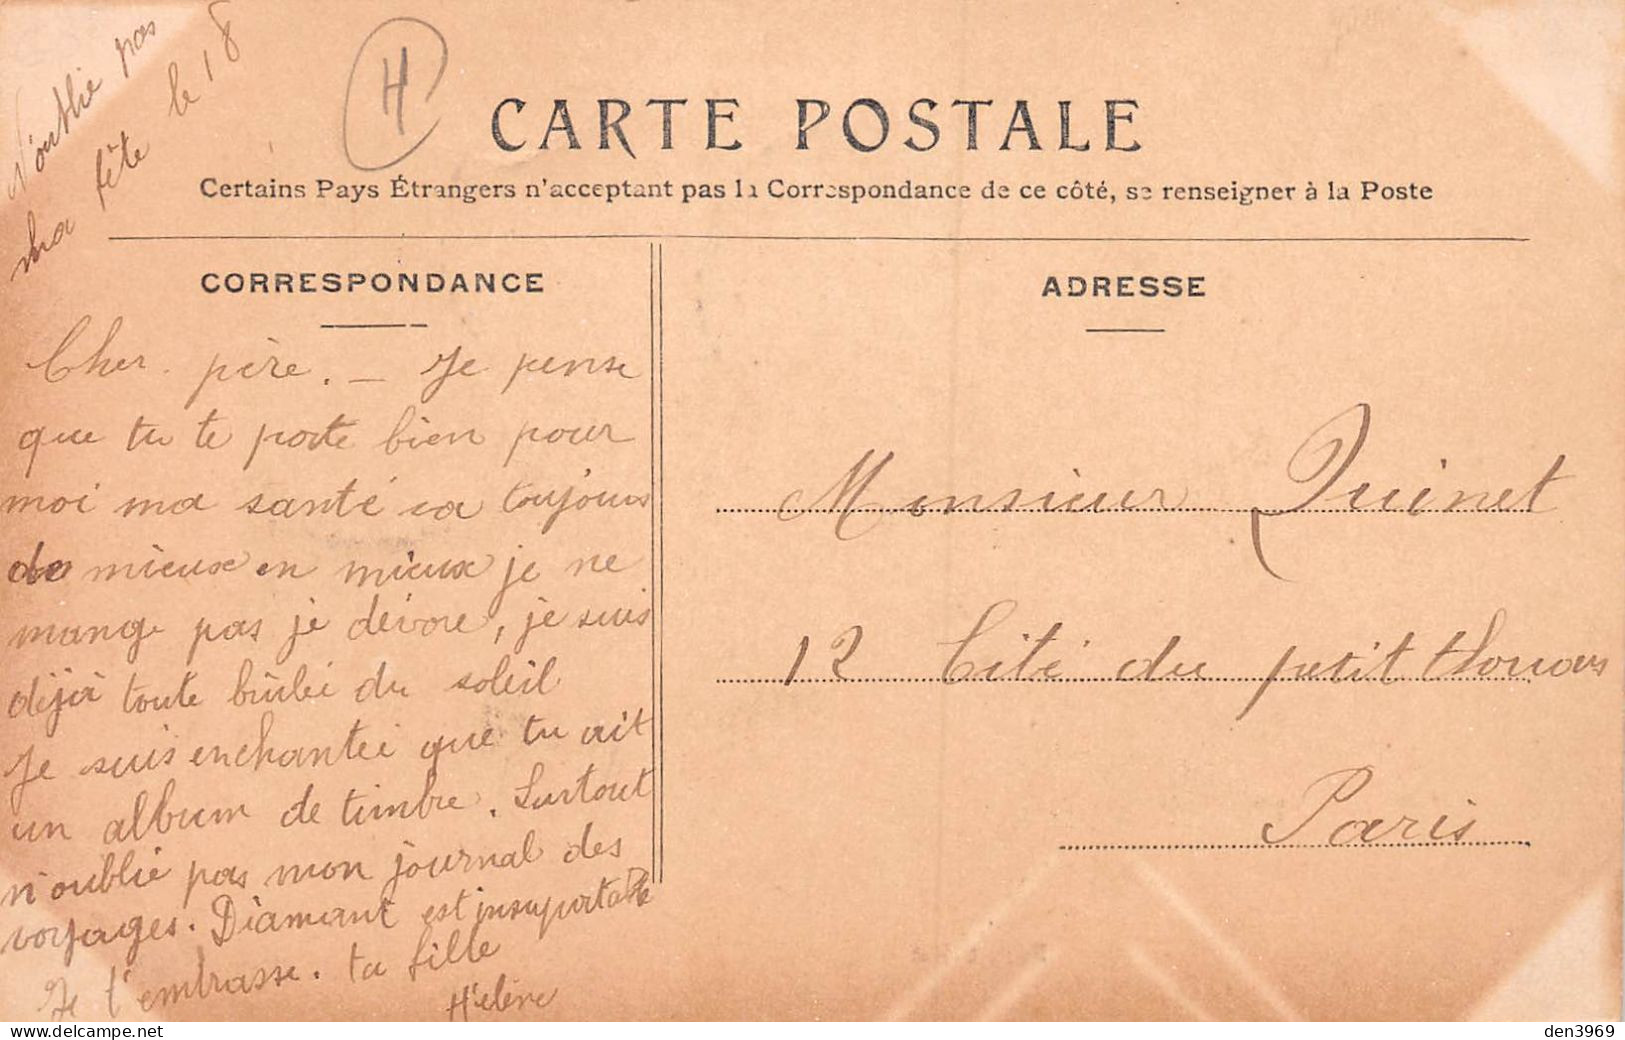 N'oublie pas
ma fête le 18
H
CARTE POSTALE
Certains Pays Étrangers n'acceptant pas la Correspondance de ce côté, se renseigner à la Poste
CORRESPONDANCE
Cher père. — Je pense
que tu te porte bien pour
moi ma santé va toujours
de mieux en mieux je ne
mange pas je dévore, je suis
déjà toute brûlée du soleil
Je suis enchantée que tu ait
un album de timbre. Surtout
n'oublie pas mon journal des
voyages. Diamant est insuportable
Je t'embrasse. ta fille
Hélène
ADRESSE
Monsieur Quinet
12 Cité du petit thouars
Paris
www.delcampe.net
den3969